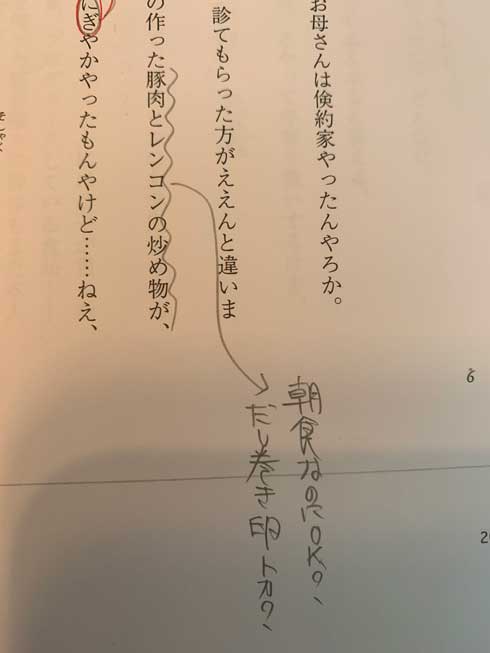 お母さんは倹約家やったんやろか。
診てもらった方がええんと違いま
の作った豚肉とレンコンの炒め物が、
にぎやかやったもんやけど……ねえ、
そしゃく
6
20
朝食なのにOK?、
だし巻き卵トカ?、